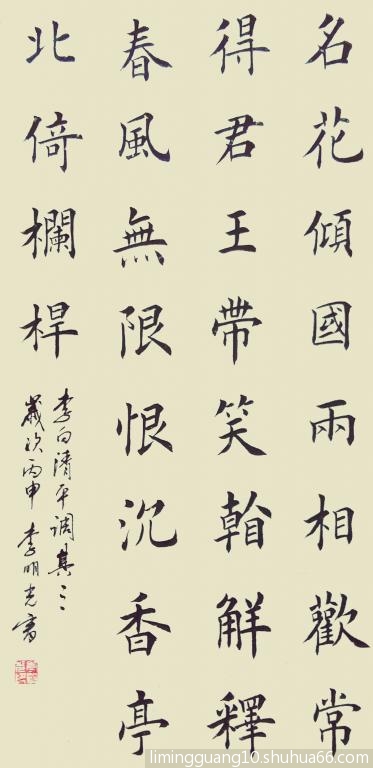 名花傾國兩相歡常
得君王帶笑看解釋
春風無限恨沉香亭
北倚欄桿
李白清平调其三
歲次丙申 李明光書
limingguang10.shuhua66.com